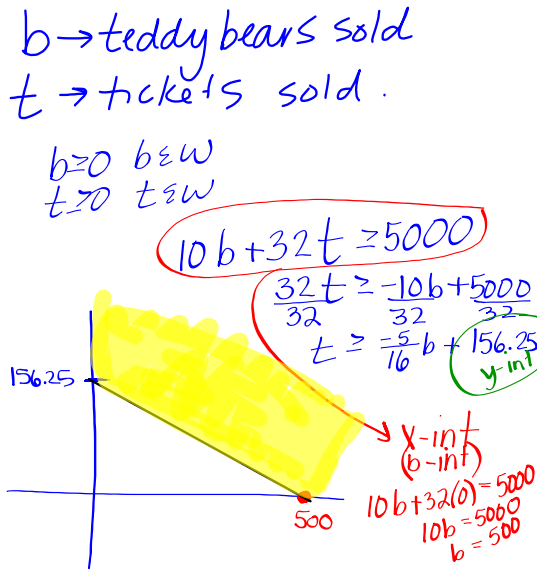 b → teddy bears sold
t → tickets sold.
b≥0 b ε W
t≥0 t ε W
10b+32t ≥5000
32t ≥ -10b+5000
32 32 32
t ≥ -5/16 b + 156.25
y-int
156.25
500
x-int
(b-int)
10b+32(0)=5000
10b=5000
b=500